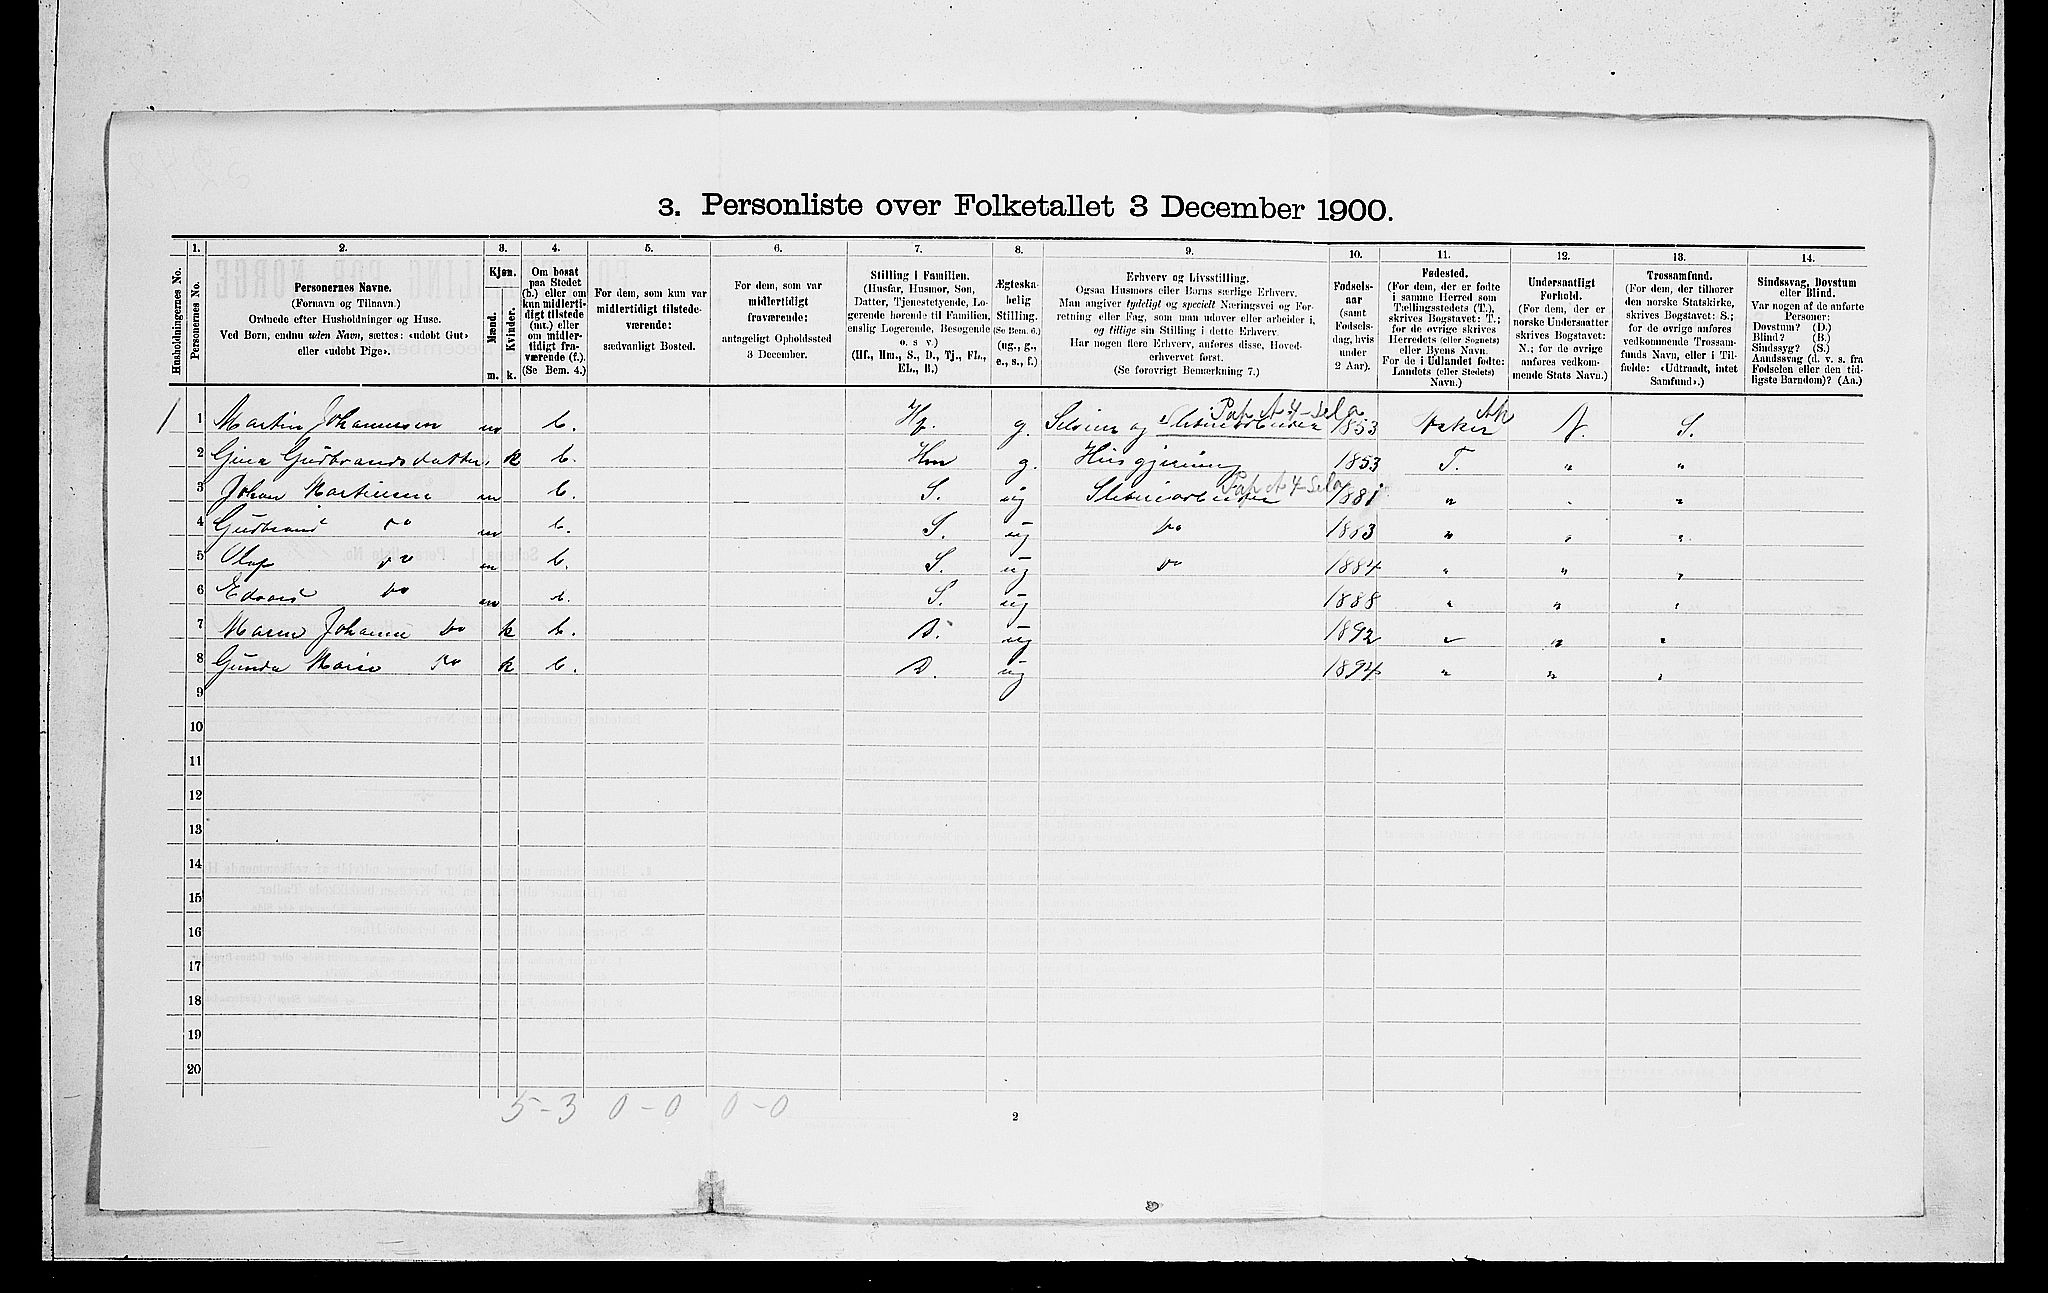 3. Personliste over Folketallet 3 December 1900.
1. 2. 3. 4. 5. 6. 7. 8. 9. 10. 11. 12. 13. 14.
Husholdningernes No.
Personernes No.
Personernes Navne.
(Fornavn og Tilnavn.)
Ordnede efter Husholdninger og Huse.
Ved Børn, endnu uden Navn, sættes: «udøbt Gut»
eller «udøbt Pige».
Kjøn.
Mænd.
Kvinder.
m. k.
Om bosat
paa Stedet
(b.) eller om
kun midlerti-
digt tilstede
(mt.) eller
om midler-
tidigt fra-
værende (f.).
(Se Bem. 4.)
For dem, som kun var
midlertidigt tilstede-
værende:
sædvanligt Bosted.
For dem, som var
midlertidigt
fraværende:
antageligt Opholdssted
3 December.
Stilling i Familien.
(Husfar, Husmor, Søn,
Datter, Tjenestetyende, Lo-
gerende hørende til Familien,
enslig Logerende, Besøgende
o. s v.)
(Hf., Hm., S., D., Tj., FL.,
EL., B.)
Ægteska-
belig
Stilling.
(Se Bem. 6.)
(ug., g.,
e., s., f.)
Erhverv og Livsstilling.
Ogsaa Husmors eller Børns særlige Erhverv.
Man angiver tydeligt og specielt Næringsvei og For-
retning eller Fag, som man udøver eller arbeider i,
og tillige sin Stilling i dette Erhverv.
Har nogen flere Erhverv, anføres disse, Hoved-
erhvervet først.
(Se forøvrigt Bemærkning 7.)
Fødsels-
aar
(samt
Fødsels-
dag, hvis
under
2 Aar).
Fødested.
(For dem, der er fødte
i samme Herred som
Tællingsstedets (T.),
skrives Bogstavet: T.;
for de øvrige skrives
Herredets (eller Sognets)
eller Byens Navn.
For de i Udlandet fødte:
Landets (eller Stedets)
Navn.)
Undersaatligt
Forhold.
(For dem, der er
norske Undersaatter
skrives Bogstavet:
N.; for de øvrige
anføres vedkom-
mende Stats Navn.)
Trossamfund.
(For dem, der tilhører
den norske Statskirke,
skrives Bogstavet: S.;
for de øvrige anføres
vedkommende Trossam-
funds Navn, eller i Til-
fælde: «Udtraadt, intet
Samfund».)
Sindssvag, Døvstum
eller Blind.
Var nogen af de anførte
Personer:
Døvstum? (D.)
Blind? (B.)
Sindssyg? (S.)
Aandssvag (d. v. s. fra
Fødselen eller den tid-
ligste Barndom)? (Aa.)
1 1 Martin Johannesen m b. Hf. g. Selveier og Sliberiarbeider Pap A 4 - sela 1853 Asker Ak N. S.
2 Gina Gudbrandsdatter k b. Hm g. Husgjerning 1853 T. " "
3 Johan Martinsen m b. S. ug Sliberiarbeider Pap A 4 - sela 1881 " " "
4 Gudbrand Do m b. S. ug Do 1883 " " "
5 Olaf Do m b. S. ug Do 1884 " " "
6 Edvard Do m b. S. ug 1888 " " "
7 Maren Johanne Do k b. D. ug 1892 " " "
8 Gunda Marie Do k b. D. ug 1894 " " "
9
10
11
12
13
14
15
16
17
18
19
20
5-3 0-0 0-0
2